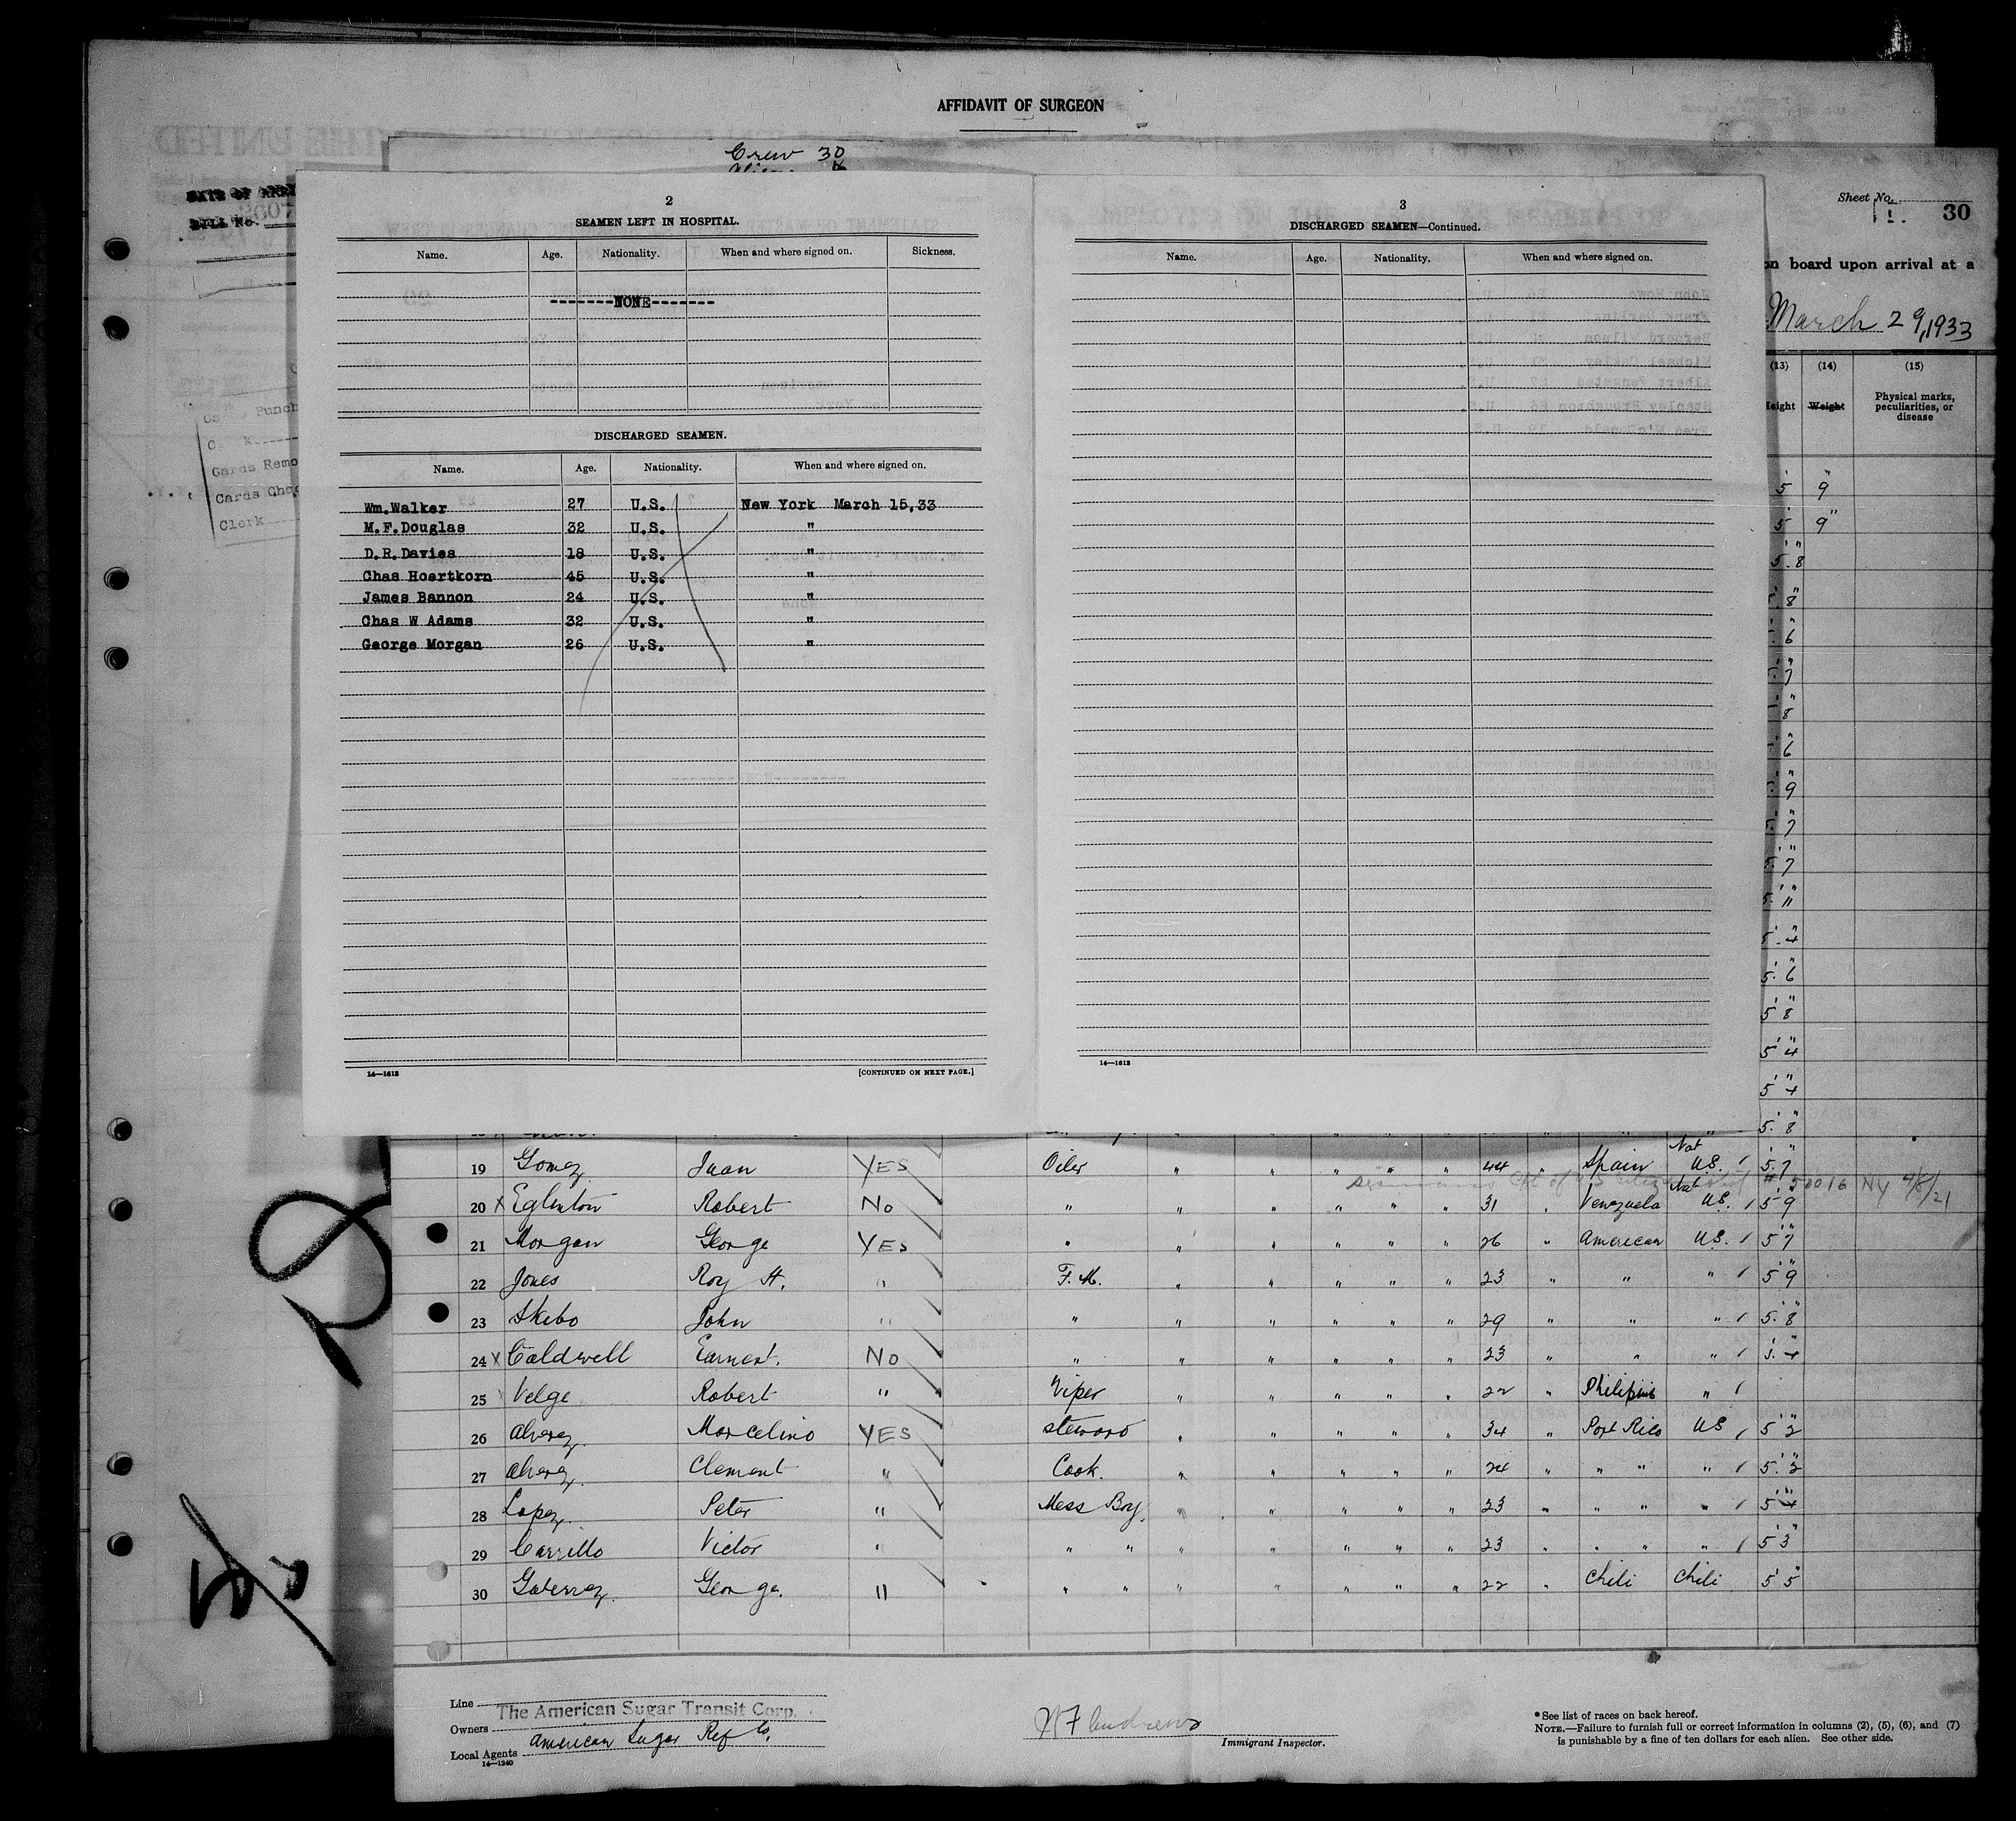 AFFIDAVIT OF SURGEON
Crew 30
DATE OF
No.
Punch
Cards Remo
Cards Chec
Clerk
2
SEAMEN LEFT IN HOSPITAL.
Name. Age. Nationality. When and where signed on. Sickness.
-------NONE-------
DISCHARGED SEAMEN.
Name. Age. Nationality. When and where signed on.
Wm.Walker 27 U.S. New York March 15,33
M.F.Douglas 32 U.S. "
D.R.Davies 18 U.S. "
Chas Hoertkorn 45 U.S. "
James Bannon 24 U.S. "
Chas W Adams 32 U.S. "
George Morgan 26 U.S. "
14—1613 [CONTINUED ON NEXT PAGE.]
3
DISCHARGED SEAMEN—Continued.
Name. Age. Nationality. When and where signed on.
14—1613
Sheet No. 1. 30
on board upon arrival at a
March 29, 1933
(13) (14) (15)
Height Weight Physical marks, peculiarities, or disease
5 9"
5 9"
5'-8"
8"
6"
7"
8"
6"
9"
5'.7"
5'.7"
5'.11"
5'.4"
5'.6"
5'8"
5'4"
5'4"
5'.8"
19 Gomez Juan YES Oiler " " " " " 44 " Spain Nat U.S. 5'.7"
50016 NY 4/8/21
20 x Eglinton Robert No " " " " " " 31 " Venezuela Nat U.S. 5'9"
21 Morgan George YES " " " " " " 26 " American U.S. 5'7"
22 Jones Roy H. " F.M. " " " " " 23 " " " 5'9"
23 Skebo John " " " " " " " 29 " " " 5'.8"
24 x Caldwell Earnest. No " " " " " " 23 " " " 5'.4"
25 Velge Robert " Wiper " " " " " 22 " Philipine "
26 Alverez. Marcelino YES Steward " " " " " 34 " Port Rico US 5'2"
27 Alverez. Clement " Cook. " " " " " 24 " " " " 5'.2"
28 Lopez. Peter " Mess Boy. " " " " " 23 " " " " 5'4"
29 Carrillo Victor " " " " " " " " 23 " " " " 5'3"
30 George. " " " " " " " " 22 " Chili Chili 5'5"
Line The American Sugar Transit Corp.
Owners American Sugar Ref Co.
Local Agents
14—1240
Andrews
Immigrant Inspector.
*See list of races on back hereof.
NOTE.—Failure to furnish full or correct information in columns (2), (5), (6), and (7)
is punishable by a fine of ten dollars for each alien. See other side.